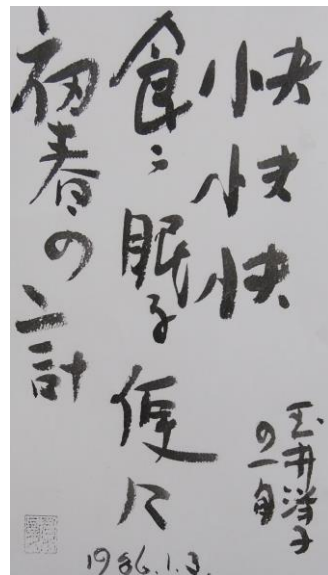 快快快
食う眠る便に
初春の計
玉井洋子
の一句
1986.1.3.